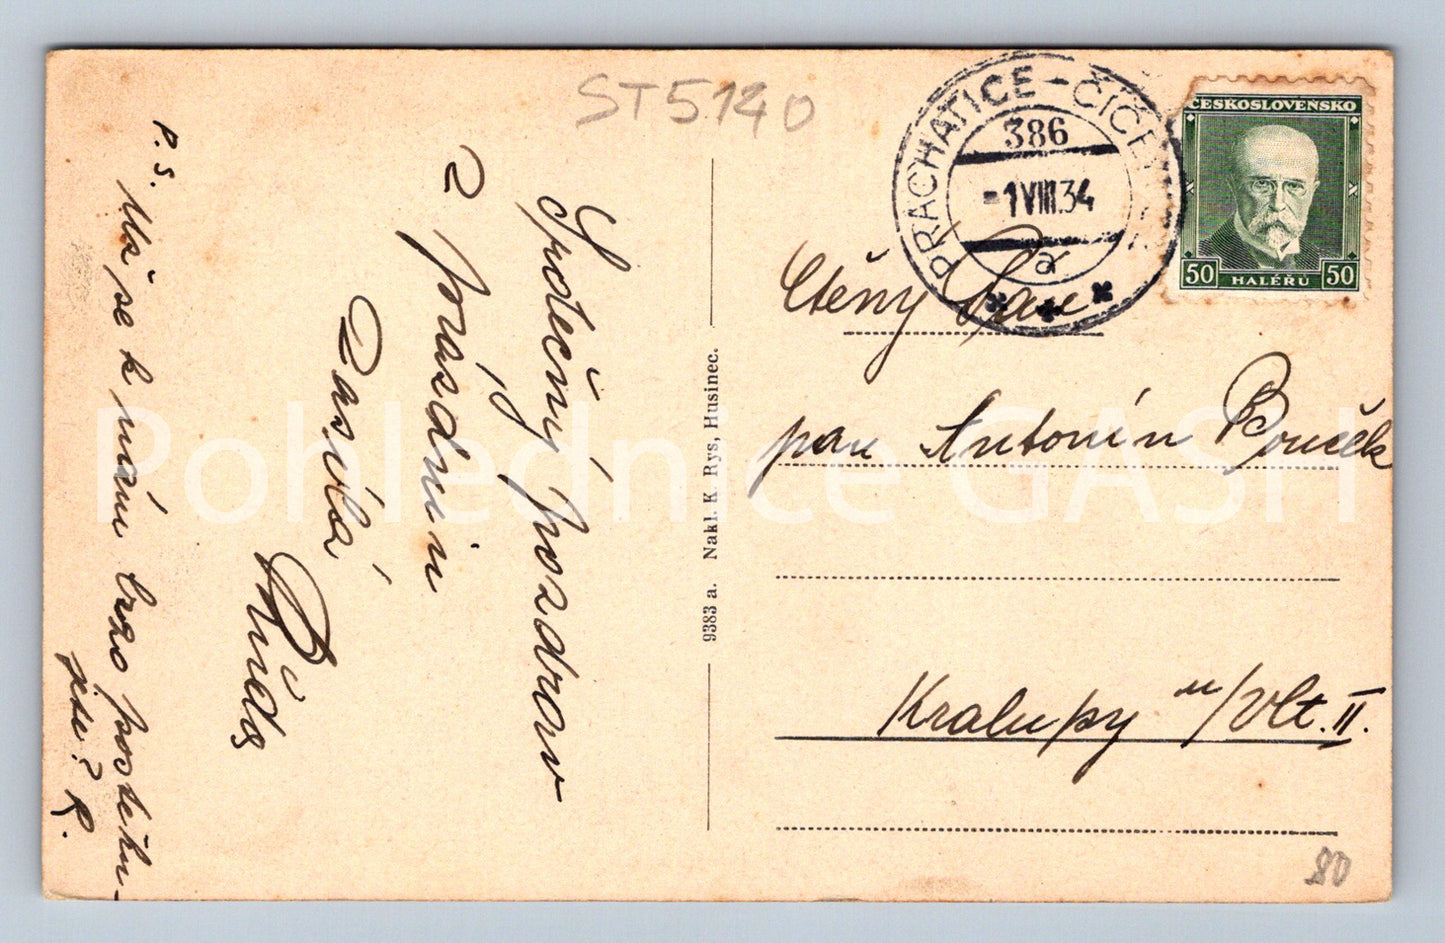 ST5140
PRACHATICE - ČIČE
386
-1.VIII.34
a
ČESKOSLOVENSKO
50 HALÉŘŮ 50
Ctěný Pan
pan Antonín Bouček
Kralupy n/Vlt. II.
80
9383 a. Nakl. K. Rys, Husinec.
Společný pozdrav
z prázdnin
zasílá
P.S.
se k nám brzo
jete? R.
Pohlednice GASH